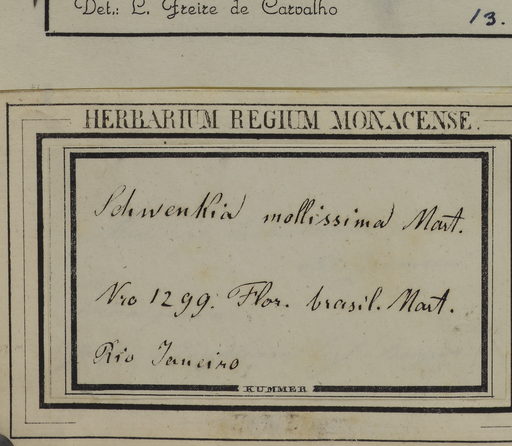 Det.: L. Freire de Carvalho
13.
HERBARIUM REGIUM MONACENSE.
Schwenkia mollissima Mart.
Nro 1299. Flor. brasil. Mart.
Rio Janeiro
KUMMER